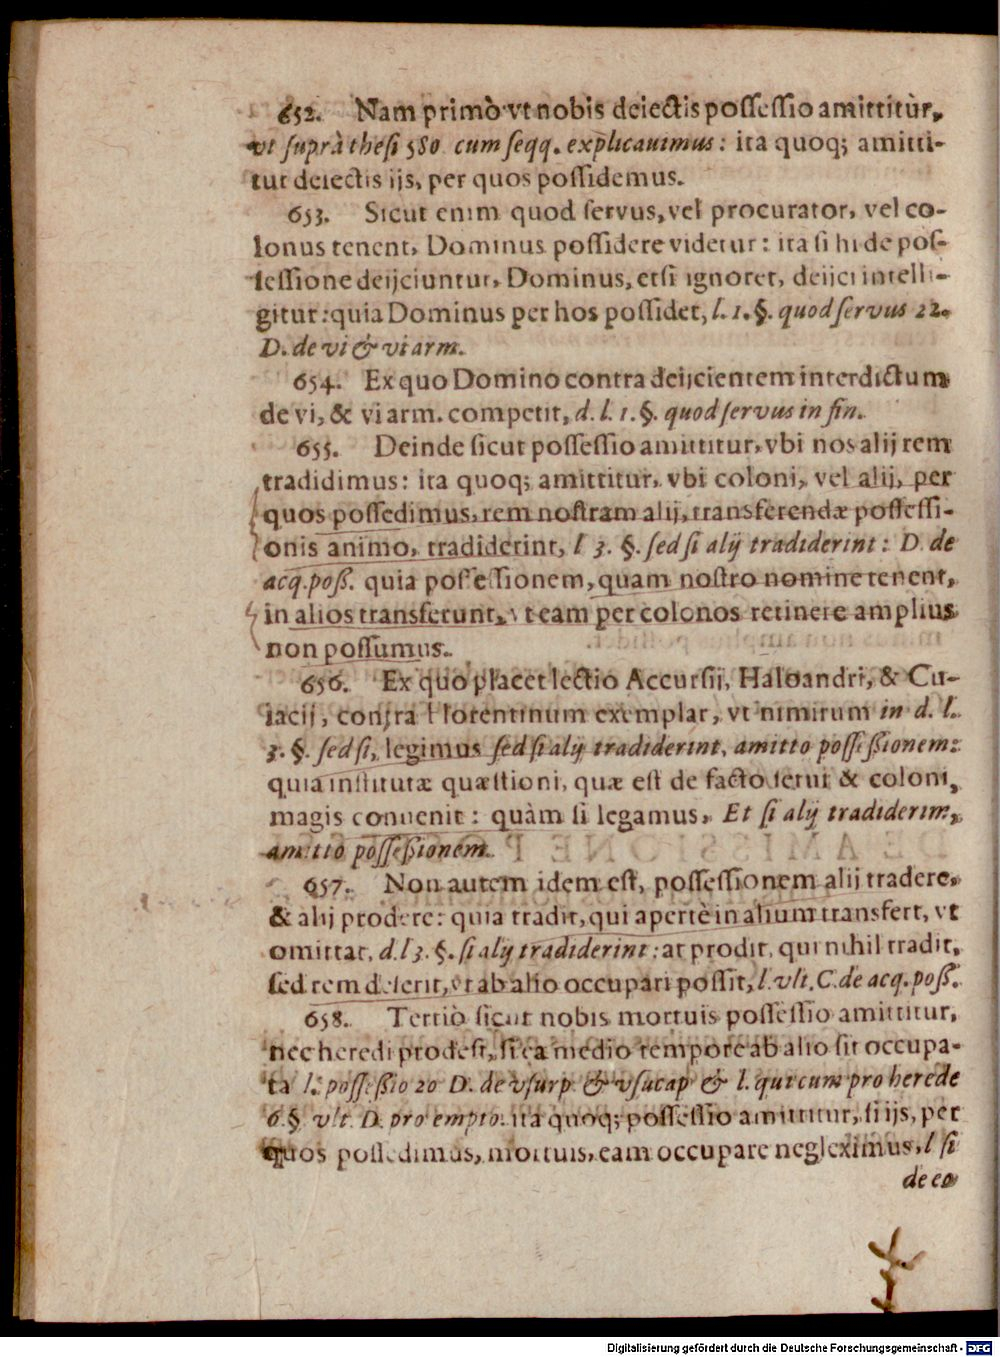 652. Nam primò vt nobis deiectis possessio amittitùr,
vt suprà thesi 580 cum seqq. explicauimus: ita quoq; amitti-
tur deiectis ijs, per quos possidemus.
653. Sicut enim quod servus, vel procurator, vel co-
lonus tenent, Dominus possidere videtur: ita si hi de pos-
sessione deijciuntur, Dominus, etsi ignoret, deijci intelli-
gitur: quia Dominus per hos possidet, l. 1. §. quod servus 22.
D. de vi & vi arm.
654. Ex quo Domino contra deijcientem interdictum
de vi, & vi arm. competit, d. l. 1. §. quod servus in fin.
655. Deinde sicut possessio amittitur, vbi nos alij rem
tradidimus: ita quoq; amittitur, vbi coloni, vel alij, per
quos possedimus, rem nostram alij, transferendæ possessi-
onis animo, tradiderint, l 3. §. sed si alij tradiderint: D. de
acq. poß. quia possessionem, quam nostro nomine tenent,
in alios transferunt, vt eam per colonos retinere amplius
non possumus.
656. Ex quo placet lectio Accursij, Haloandri, & Cu-
iacij, contra Florentinum exemplar, vt nimirum in d. l.
3. §. sed si, legimus sed si alij tradiderint, amitto posseßionem:
quia institutæ quæstioni, quæ est de facto servi & coloni,
magis convenit: quàm si legamus, Et si alij tradiderim,
amitto posseßionem.
657. Non autem idem est, possessionem alij tradere,
& alij prodere: quia tradit, qui apertè in alium transfert, vt
omittat, d. l 3. §. si alij tradiderint: at prodit, qui nihil tradit,
sed rem deserit, vt ab alio occupari possit, l. vlt. C. de acq. poß.
658. Tertiò sicut nobis mortuis possessio amittitur,
nec heredi prodest, si ea medio tempore ab alio sit occupa-
ta l. posseßio 20 D. de vsurp. & vsucap & l. qui cum pro herede
6. § vlt. D. pro empto: ita quoq; possessio amittitur, si ijs, per
quos possedimus, mortuis, eam occupare negleximus, l si
de eo
Digitalisierung gefördert durch die Deutsche Forschungsgemeinschaft - DFG